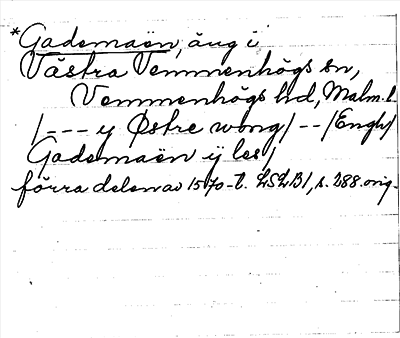 *Gademaën, äng i
Västra Vemmenhögs sn,
Vemmenhögs hd, Malm. l.
/--- ij Østre wong/--/Engh/
Gademaën ij les/
förra delen av 1570-t. LSLB1, s. 288. orig.